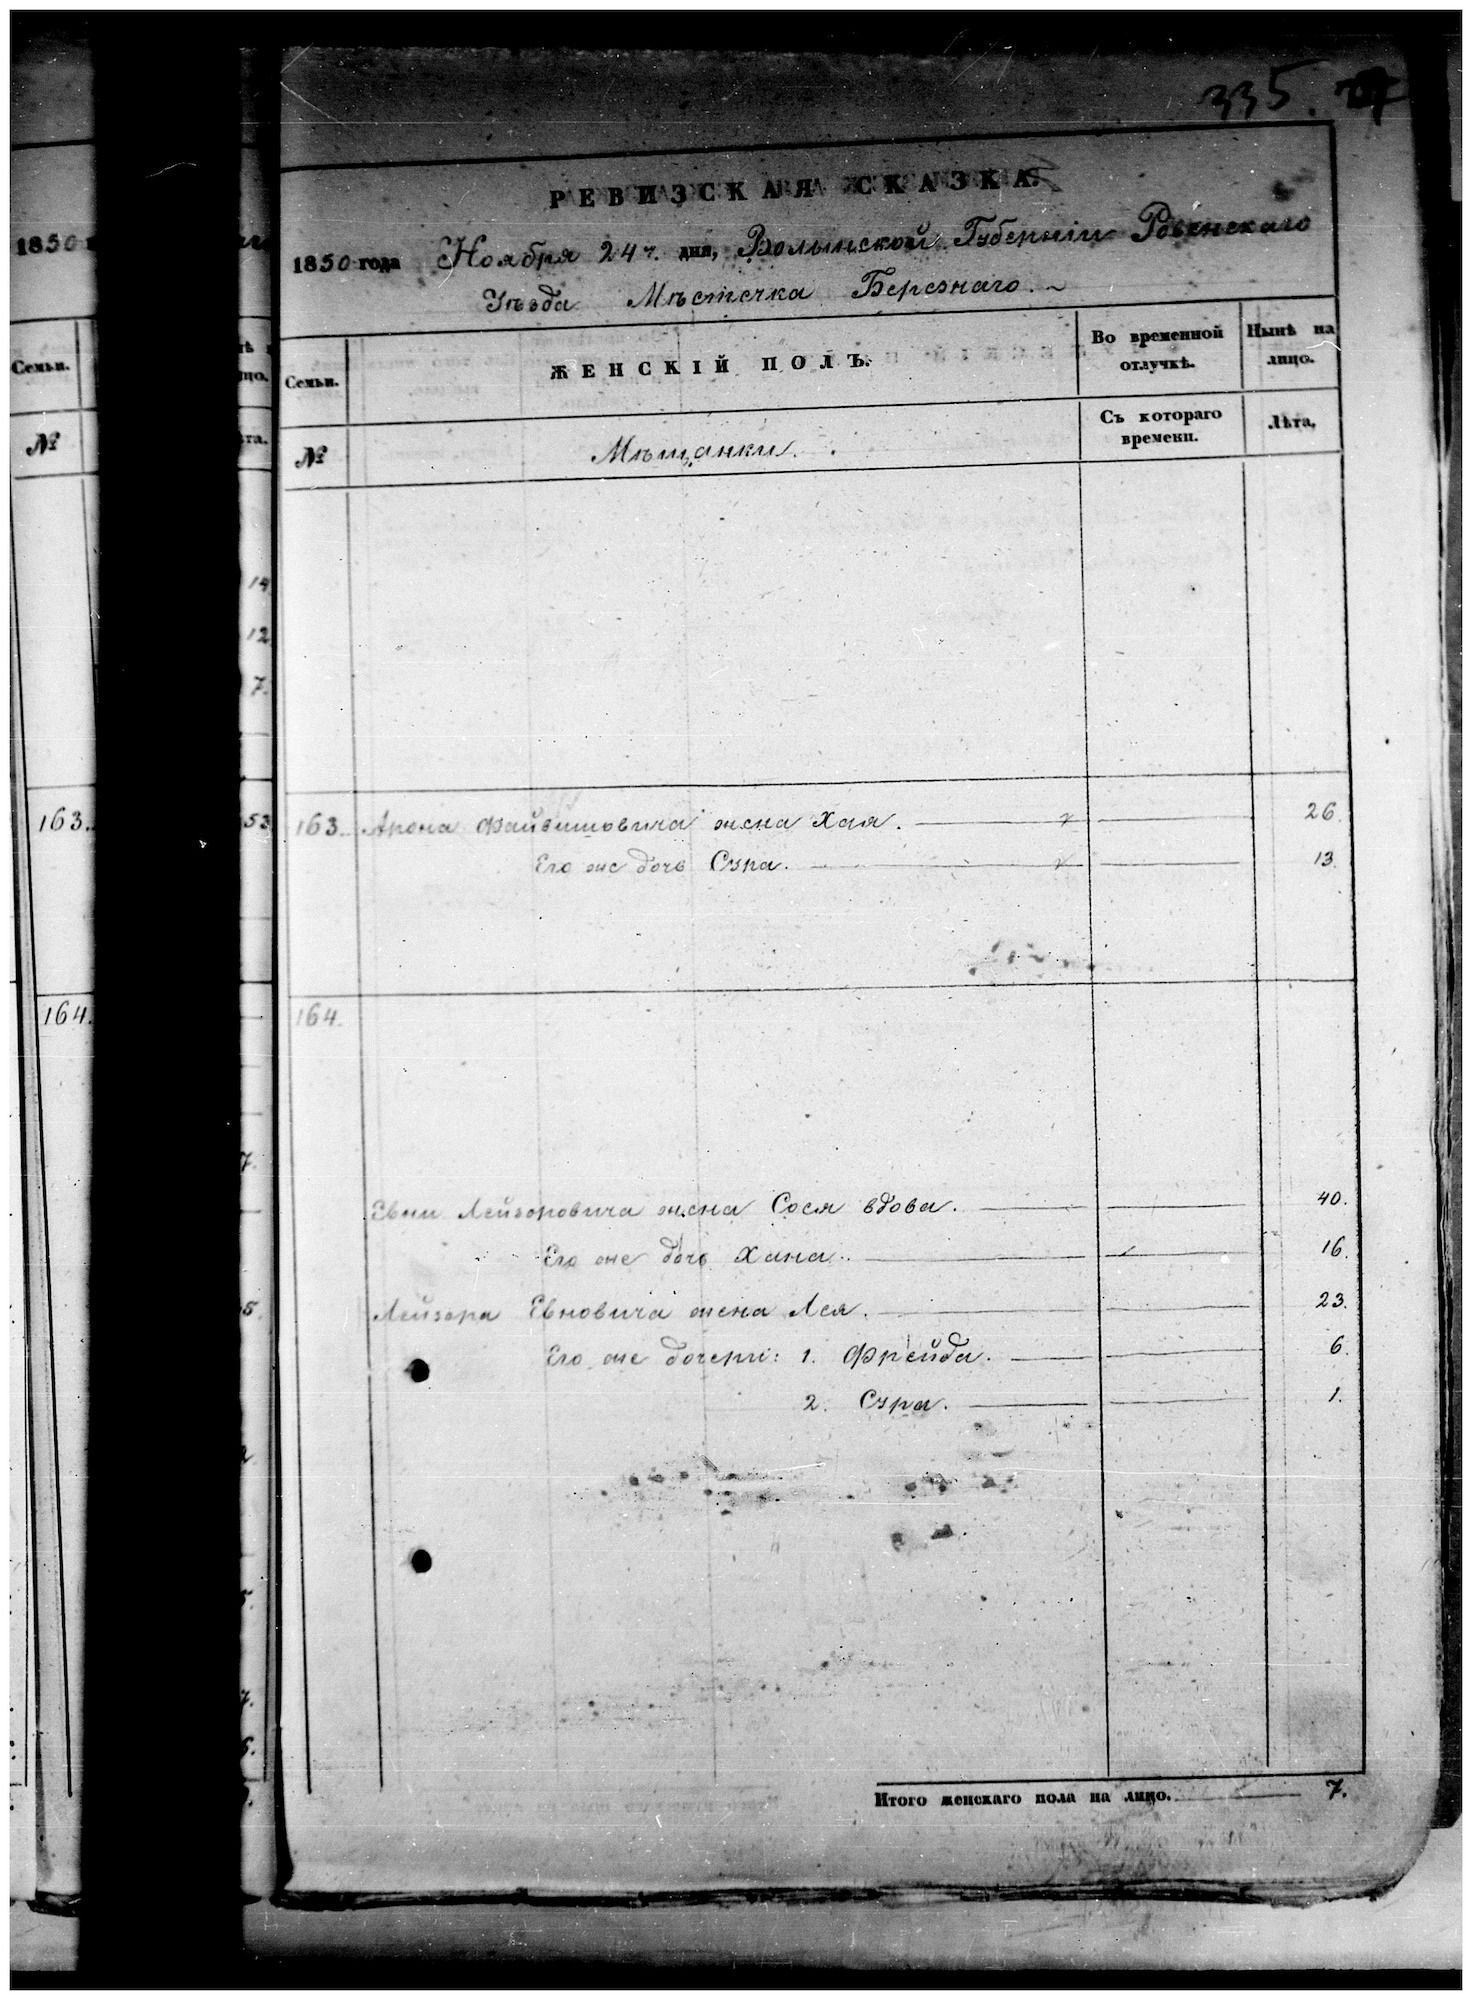 335.
РЕВИЗСКАЯ СКАЗКА.
1850 года Ноября 24 ч. дня, Волынской Губерніи Ровенскаго
Уѣзда Мѣстечка Березнаго.
Семьи.
ЖЕНСКІЙ ПОЛЪ.
Во временной отлучкѣ.
Нынѣ на лицо.
№
Мѣщанки.
Съ котораго времени.
Лѣта.
163. Арона Файвишовича жена Хая. 26.
Его же дочь Сура. 13.
164.
Евни Лейзоровича жена Сося вдова. 40.
Его же дочь Хана. 16.
Лейзера Евновича жена Лея. 23.
Его же дочери: 1. Фрейда. 6.
2. Сура. 1.
Итого женскаго пола на лицо. 7.
1850
Семьи.
№
163.
164.
цо.
та.
14
12
7.
53
7.
5.